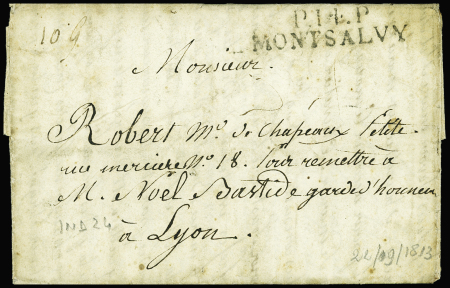 10 9
P.14.P
MONTSALVY
Monsieur.
Robert Md. de Chapeaux Petite
rue merciere No. 18. Pour remettre à
M. Noël Bastide garde d'honneur
IND 24
à Lyon.
22/09/1813